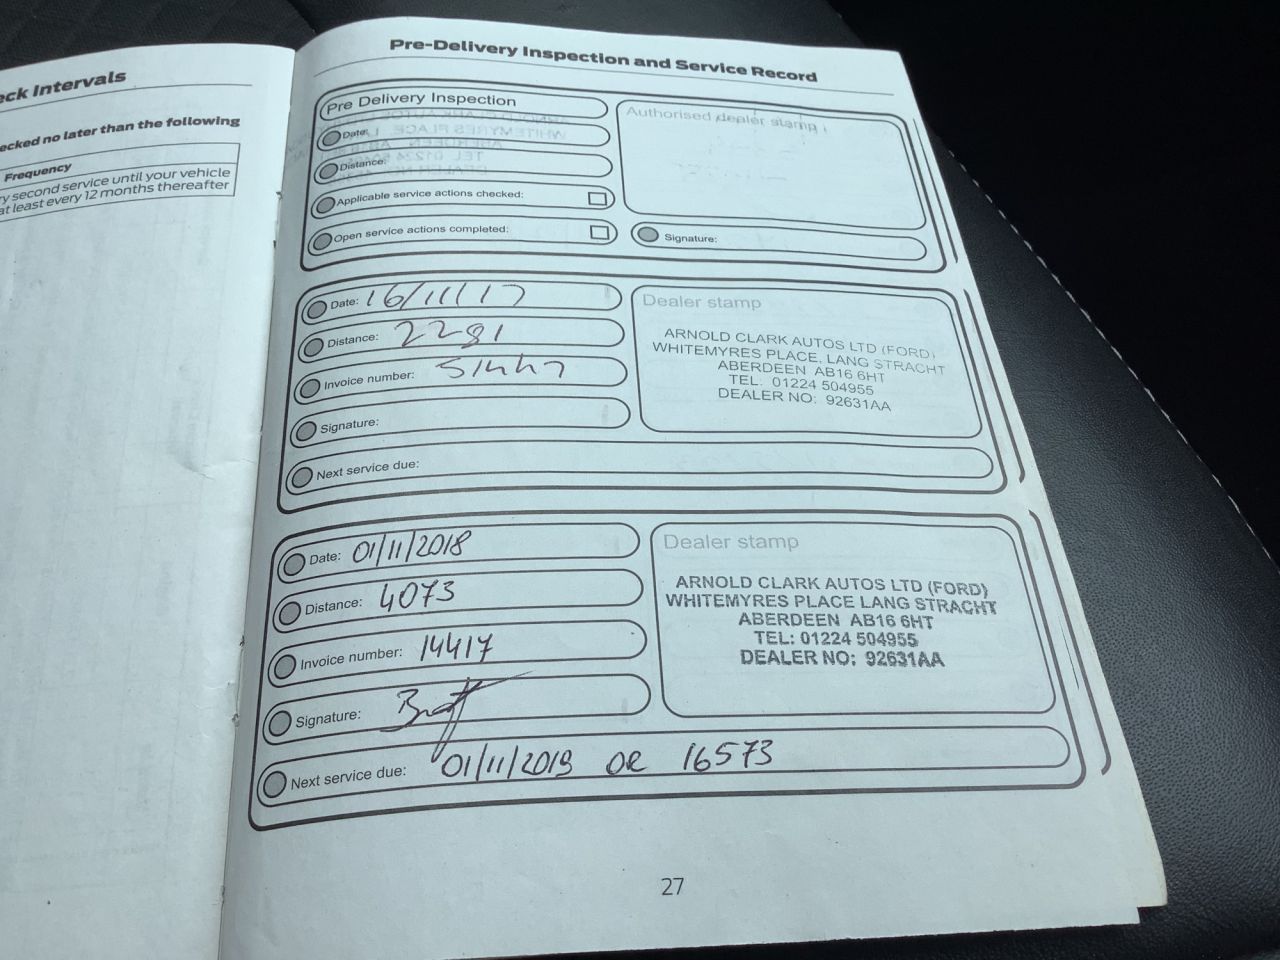 eck Intervals
ecked no later than the following
Frequency
ry second service until your vehicle
at least every 12 months thereafter
Pre-Delivery Inspection and Service Record
Pre Delivery Inspection
Date:
Distance:
Applicable service actions checked:
Open service actions completed:
Authorised dealer stamp
Signature:
Date: 16/11/17
Distance: 2281
Invoice number:
Signature:
Next service due:
Dealer stamp
ARNOLD CLARK AUTOS LTD (FORD)
WHITEMYRES PLACE, LANG STRACHT
ABERDEEN AB16 6HT
TEL: 01224 504955
DEALER NO: 92631AA
Date: 01/11/2018
Distance: 4073
Invoice number: 14417
Signature:
Next service due: 01/11/2019 OR 16573
Dealer stamp
ARNOLD CLARK AUTOS LTD (FORD)
WHITEMYRES PLACE LANG STRACHT
ABERDEEN AB16 6HT
TEL: 01224 504955
DEALER NO: 92631AA
27